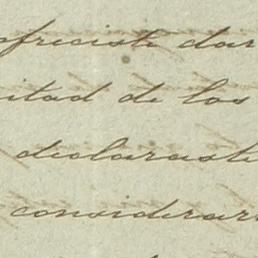 ofreciste dar
itad de los
declaraste
considerar